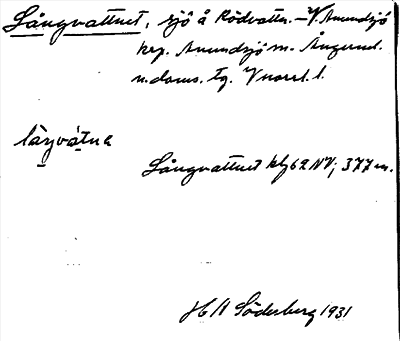 Långvattnet, sjö å Rödvattn.–V. Anundsjö
krp. Anundsjö sn. Ångerml.
n. doms. tg. Vnorrl. l.
låŋvátnə
Långvattnet kbl 62 NV; 377 m.
H A Söderberg 1931